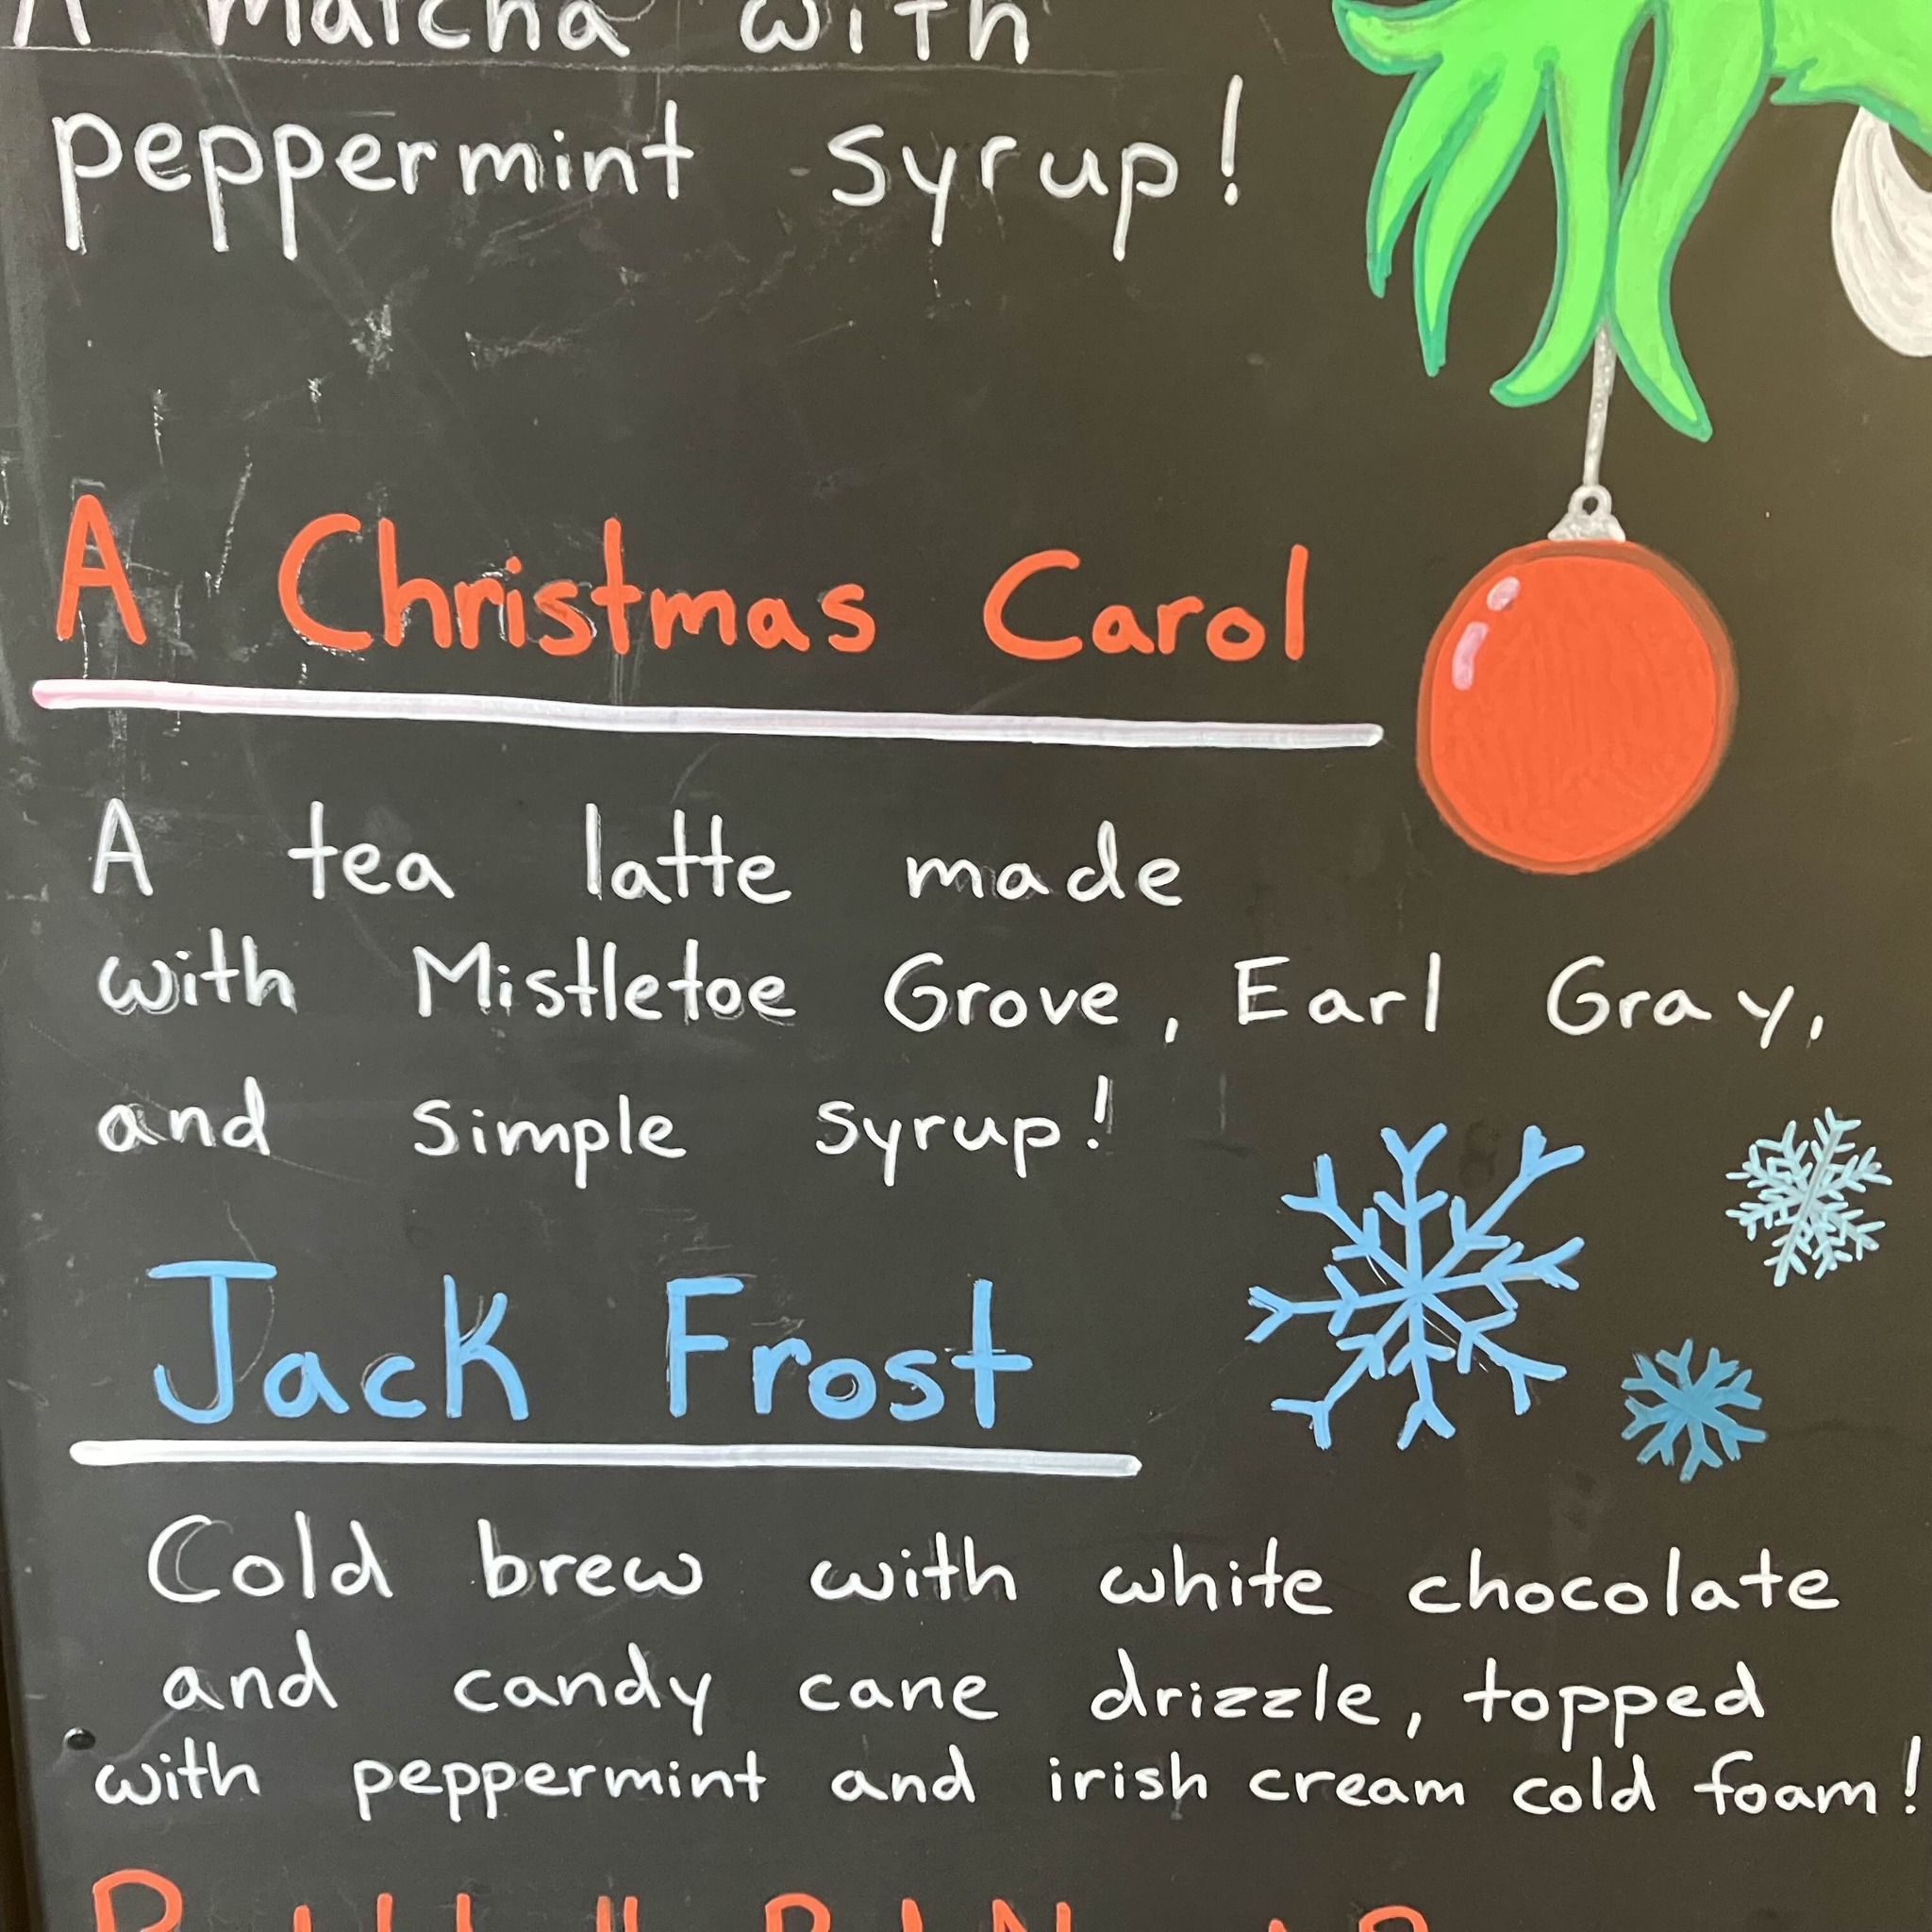 A matcha with
peppermint syrup!
A Christmas Carol
A tea latte made
with Mistletoe Grove, Earl Gray,
and simple syrup!
Jack Frost
Cold brew with white chocolate
and candy cane drizzle, topped
with peppermint and irish cream cold foam!